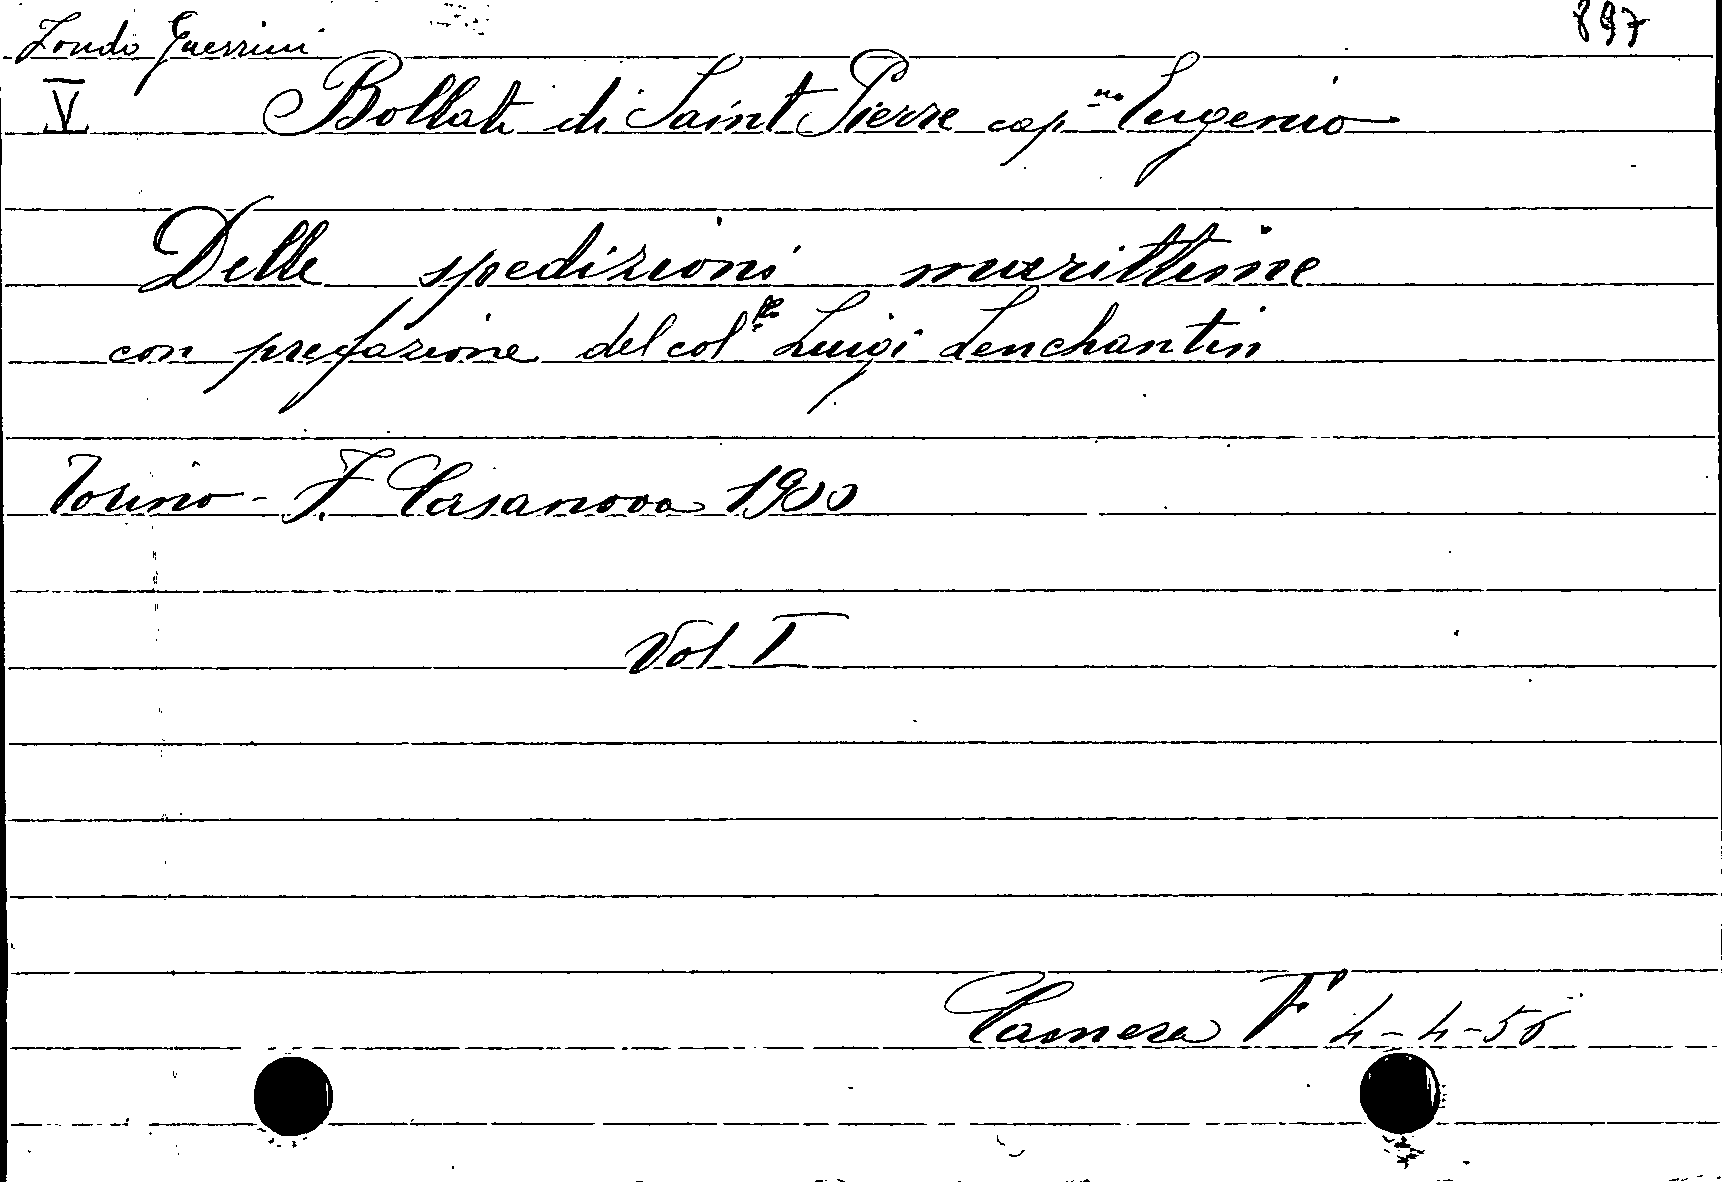 Fondo Guerrini 897
V Bollati di Saint Pierre cap.no Eugenio
Delle spedizioni marittime
con prefazione del col.llo Luigi Lenchantin
Torino - F. Casanova 1900
Vol I
Camera F 4-4-56